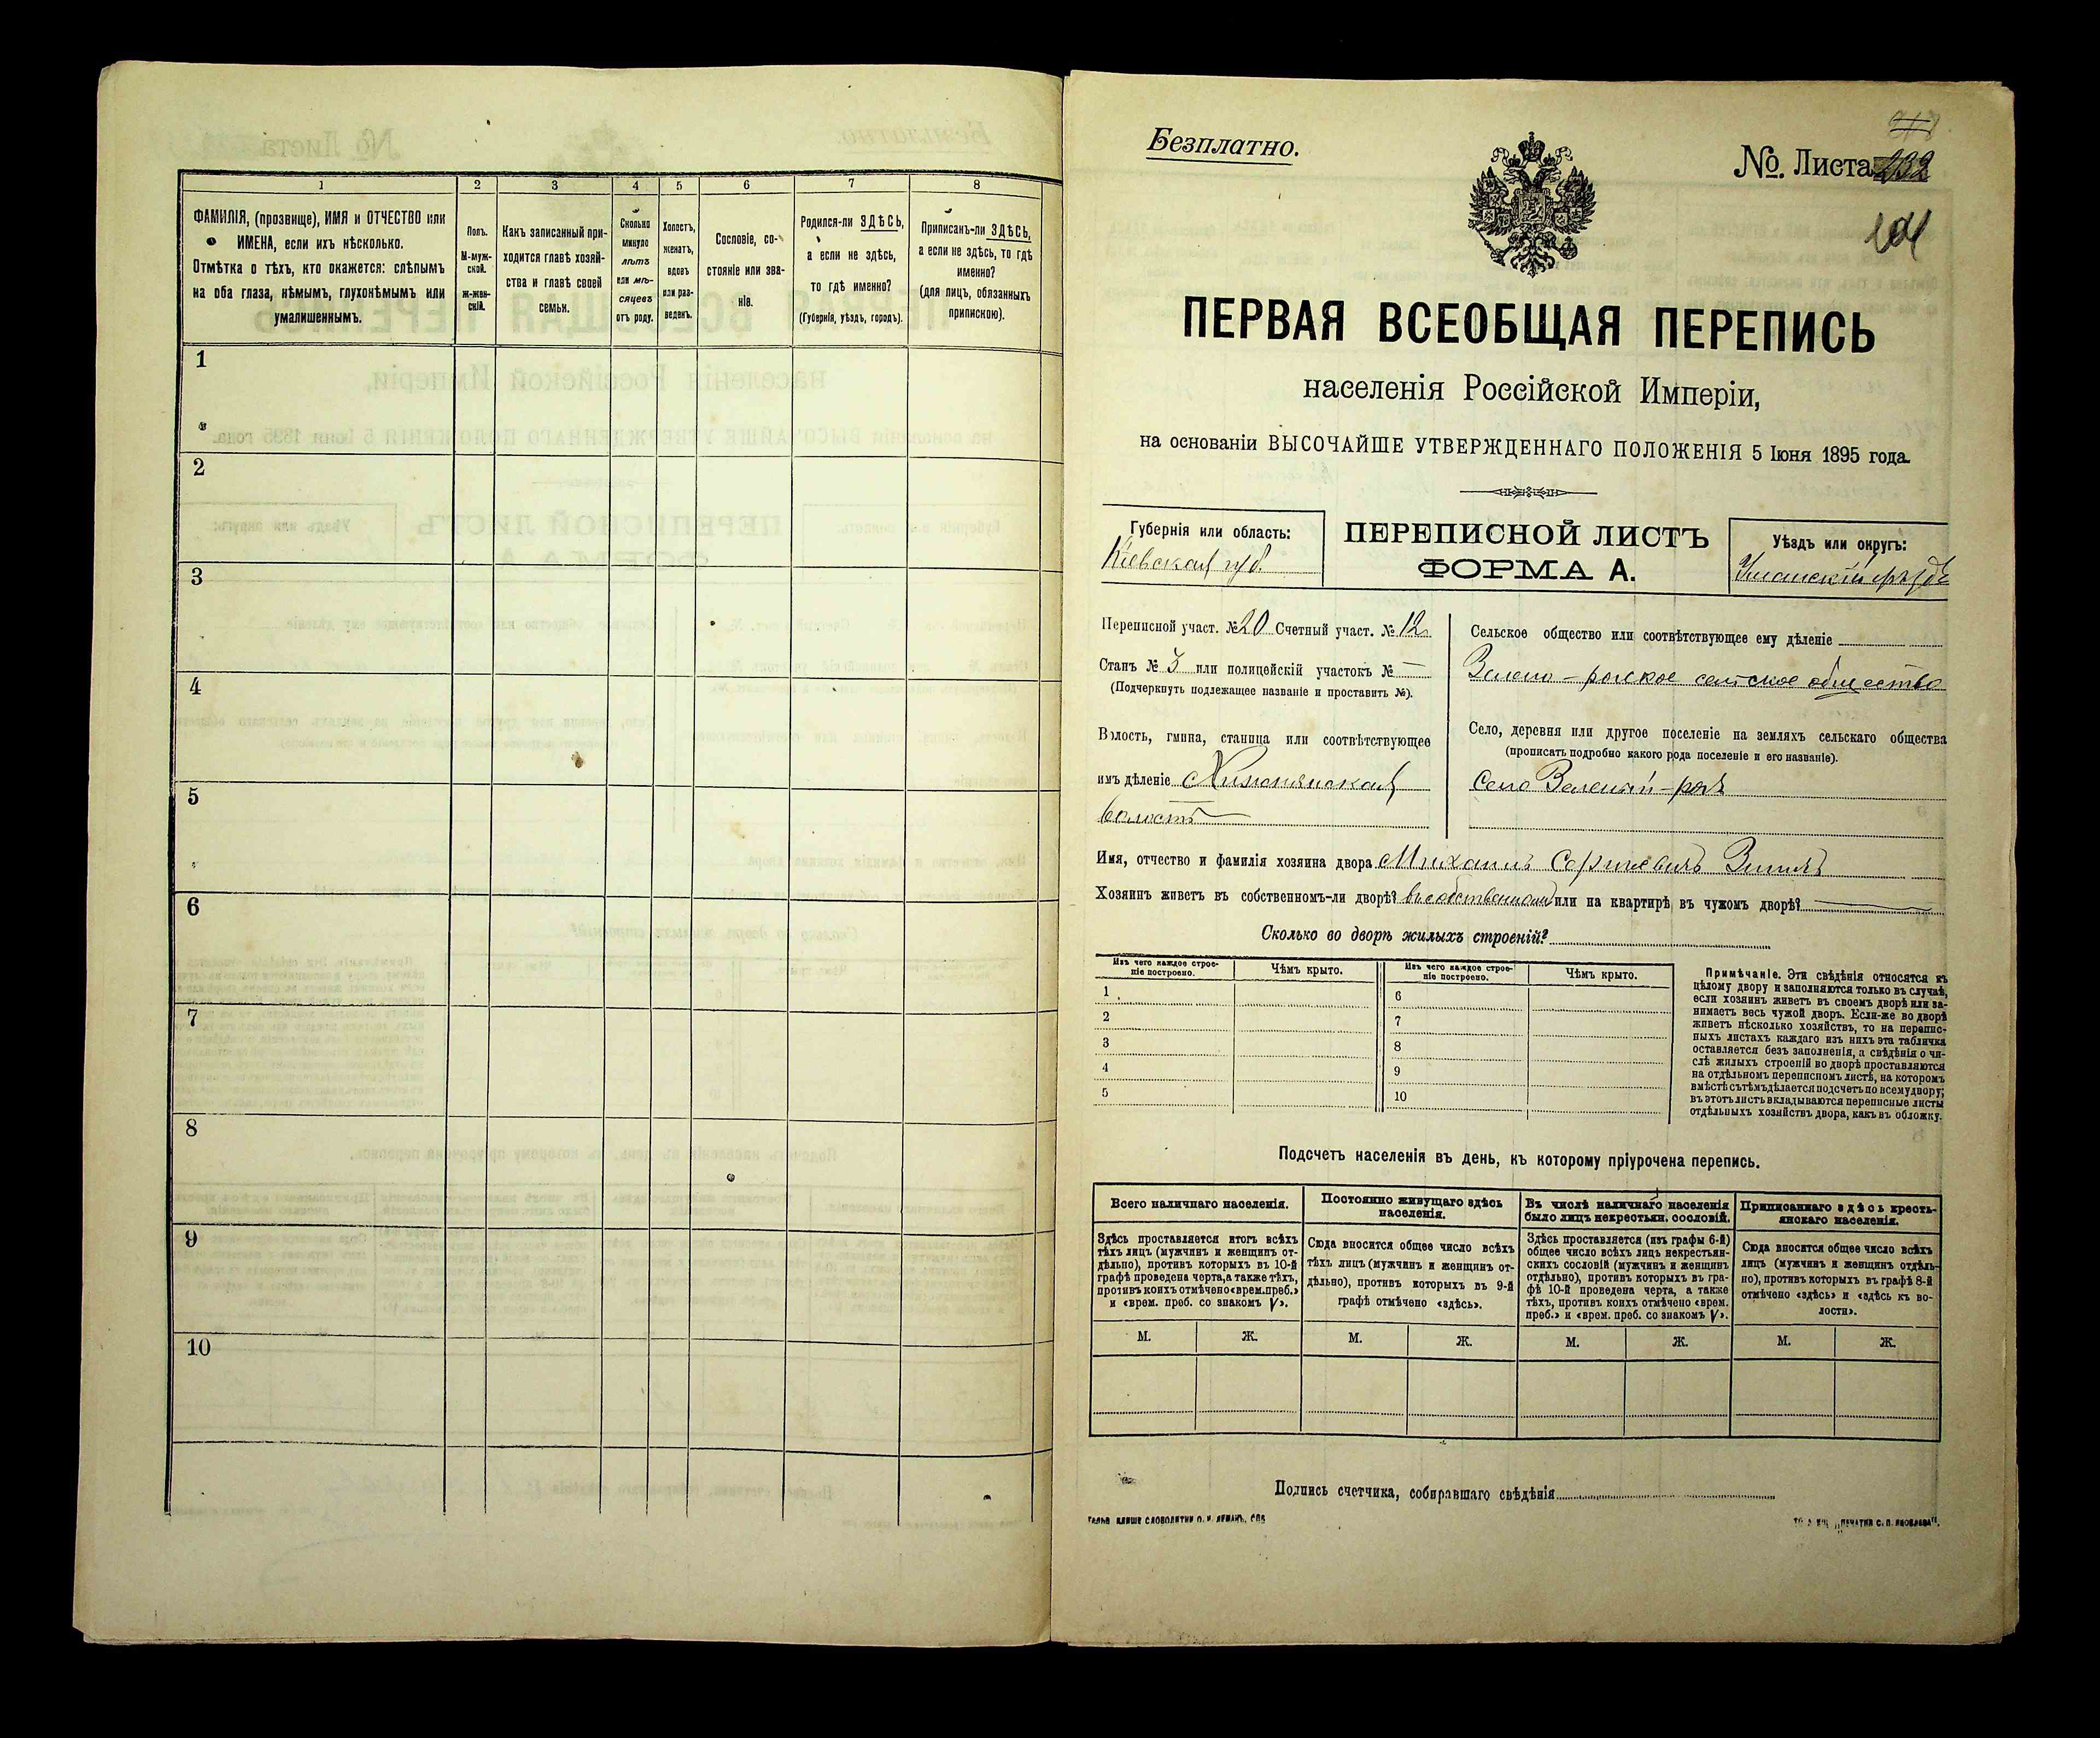 1 2 3 4 5 6 7 8
ФАМИЛІЯ, (прозвище), ИМЯ и ОТЧЕСТВО или
ИМЕНА, если ихъ нѣсколько.
Отмѣтка о тѣхъ, кто окажется: слѣпымъ
на оба глаза, нѣмымъ, глухонѣмымъ или
умалишеннымъ.
Полъ.
М-муж-
ской.
Ж-жен-
скій.
Какъ записанный при-
ходится главѣ хозяй-
ства и главѣ своей
семьи.
Сколько
минуло
лѣтъ
или мѣ-
сяцевъ
отъ роду.
Холостъ,
женатъ,
вдовъ
или раз-
веденъ.
Сословіе, со-
стояніе или зва-
ніе.
Родился-ли ЗДѢСЬ,
а если не здѣсь,
то гдѣ именно?
(Губернія, уѣздъ, городъ).
Приписанъ-ли ЗДѢСЬ,
а если не здѣсь, то гдѣ
именно?
(для лицъ, обязанныхъ
припискою).
1
2
3
4
5
6
7
8
9
10
Безплатно.
№. Листа 232
101
ПЕРВАЯ ВСЕОБЩАЯ ПЕРЕПИСЬ
населенія Россійской Имперіи,
на основаніи ВЫСОЧАЙШЕ УТВЕРЖДЕННАГО ПОЛОЖЕНІЯ 5 Іюня 1895 года.
Губернія или область:
Кіевская губ.
ПЕРЕПИСНОЙ ЛИСТЪ
ФОРМА А.
Уѣздъ или округъ:
Уманскій уѣздъ
Переписной участ. № 20 Счетный участ. № 12
Станъ № 3 или полицейскій участокъ № —
(Подчеркнуть подлежащее названіе и проставить №).
Волость, гмина, станица или соотвѣтствующее
имъ дѣленіе
волость
Сельское общество или соотвѣтствующее ему дѣленіе
Зелено-рогское сельское общество
Село, деревня или другое поселеніе на земляхъ сельскаго общества
(прописать подробно какого рода поселеніе и его названіе).
Село Зеленый-рогъ
Имя, отчество и фамилія хозяина двора Михаилъ Сергѣевичъ
Хозяинъ живетъ въ собственномъ-ли дворѣ? въ собственномъ или на квартирѣ въ чужомъ дворѣ? —
Сколько во дворѣ жилыхъ строеній?
Изъ чего каждое строе-
ніе построено.
Чѣмъ крыто.
Изъ чего каждое строе-
ніе построено.
Чѣмъ крыто.
1 6
2 7
3 8
4 9
5 10
Примѣчаніе. Эти свѣдѣнія относятся къ
цѣлому двору и заполняются только въ случаѣ,
если хозяинъ живетъ въ своемъ дворѣ или за-
нимаетъ весь чужой дворъ. Если-же во дворѣ
живетъ нѣсколько хозяйствъ, то на перепис-
ныхъ листахъ каждаго изъ нихъ эта табличка
оставляется безъ заполненія, а свѣдѣнія о чи-
слѣ жилыхъ строеній во дворѣ проставляются
на отдѣльномъ переписномъ листѣ, на которомъ
вмѣстѣ съ тѣмъ дѣлается подсчетъ по всему двору;
въ этотъ листъ вкладываются переписные листы
отдѣльныхъ хозяйствъ двора, какъ въ обложку.
Подсчетъ населенія въ день, къ которому пріурочена перепись.
Всего наличнаго населенія.
Здѣсь проставляется итогъ всѣхъ
тѣхъ лицъ (мужчинъ и женщинъ от-
дѣльно), противъ которыхъ въ 10-й
графѣ проведена черта, а также тѣхъ,
противъ коихъ отмѣчено «врем. преб.»
и «врем. преб. со знакомъ V».
Постоянно живущаго здѣсь
населенія.
Сюда вносится общее число всѣхъ
тѣхъ лицъ (мужчинъ и женщинъ от-
дѣльно), противъ которыхъ въ 9-й
графѣ отмѣчено «здѣсь».
Въ числѣ наличнаго населенія
было лицъ некрестьян. сословій.
Здѣсь проставляется (изъ графы 6-й)
общее число всѣхъ лицъ некрестьян-
скихъ сословій (мужчинъ и женщинъ
отдѣльно), противъ которыхъ въ гра-
фѣ 10-й проведена черта, а также
тѣхъ, противъ коихъ отмѣчено «врем.
преб.» и «врем. преб. со знакомъ V».
Приписаннаго здѣсь кресть-
янскаго населенія.
Сюда вносится общее число всѣхъ
лицъ (мужчинъ и женщинъ отдѣль-
но), противъ которыхъ въ графѣ 8-й
отмѣчено «здѣсь» и «здѣсь къ во-
лости».
М. Ж. М. Ж. М. Ж. М. Ж.
Подпись счетчика, собиравшаго свѣдѣнія